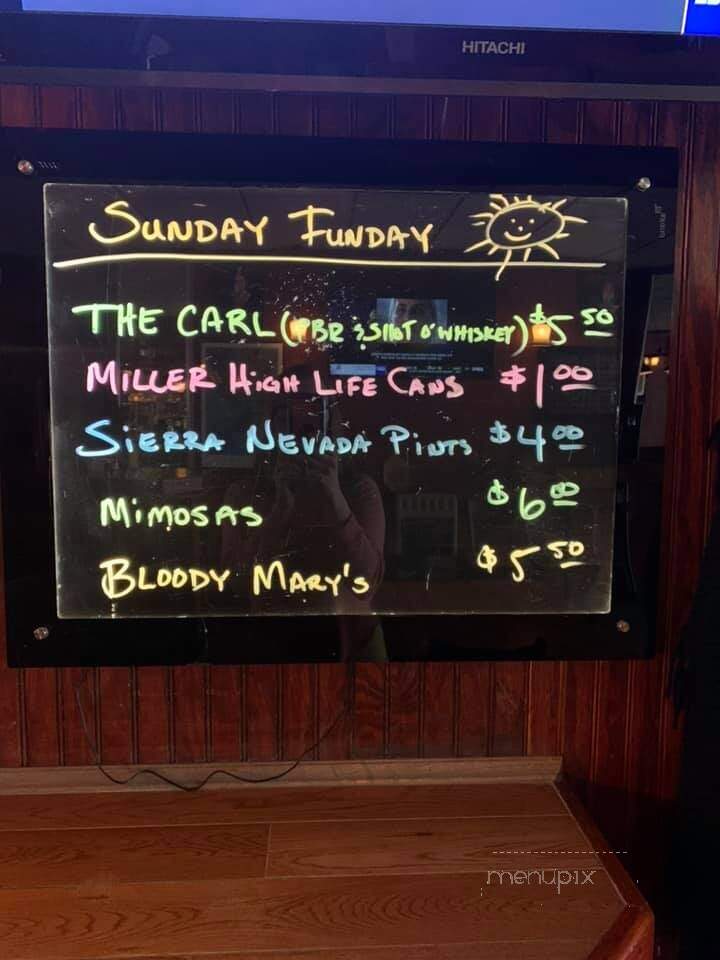 HITACHI
SUNDAY FUNDAY
THE CARL (PBR & SHOT O' WHISKEY) $5 50
MILLER HIGH LIFE CANS $1 00
SIERRA NEVADA PINTS $4 00
MIMOSAS $6 00
BLOODY MARY'S $5 50
menupix